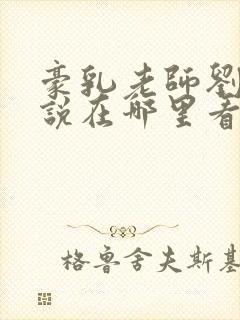 豪乳老師劉
說在哪里看
格魯舍夫斯基